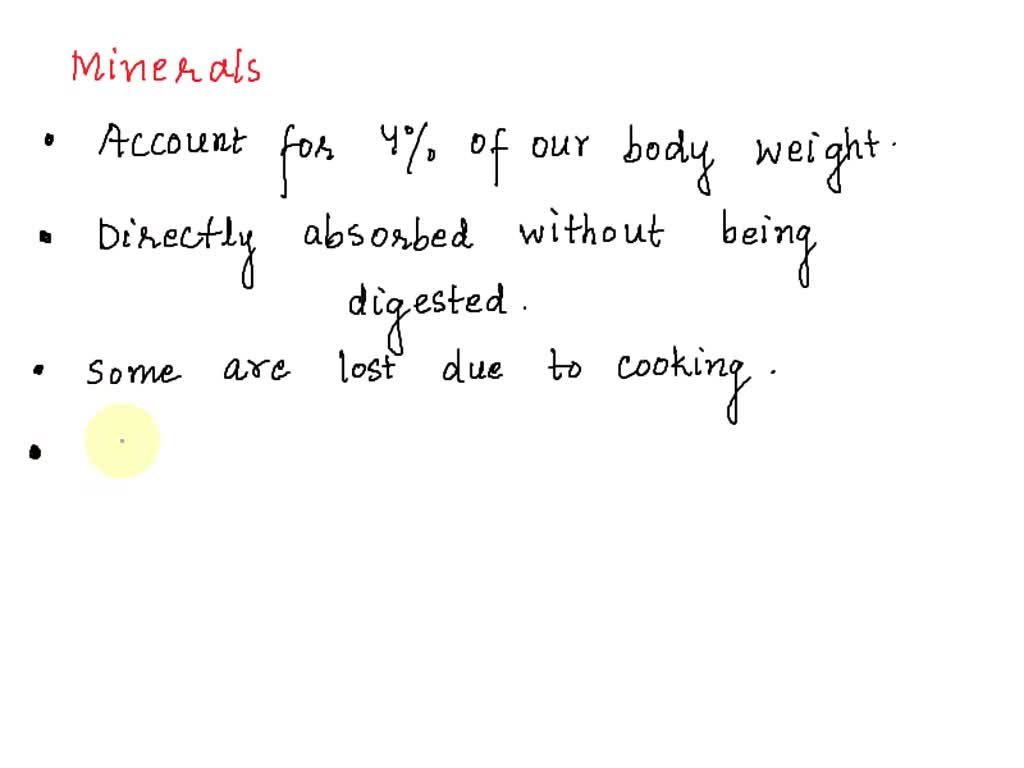 Minerals
• Account for 4% of our body weight.
• Directly absorbed without being
digested.
• Some are lost due to cooking.
•